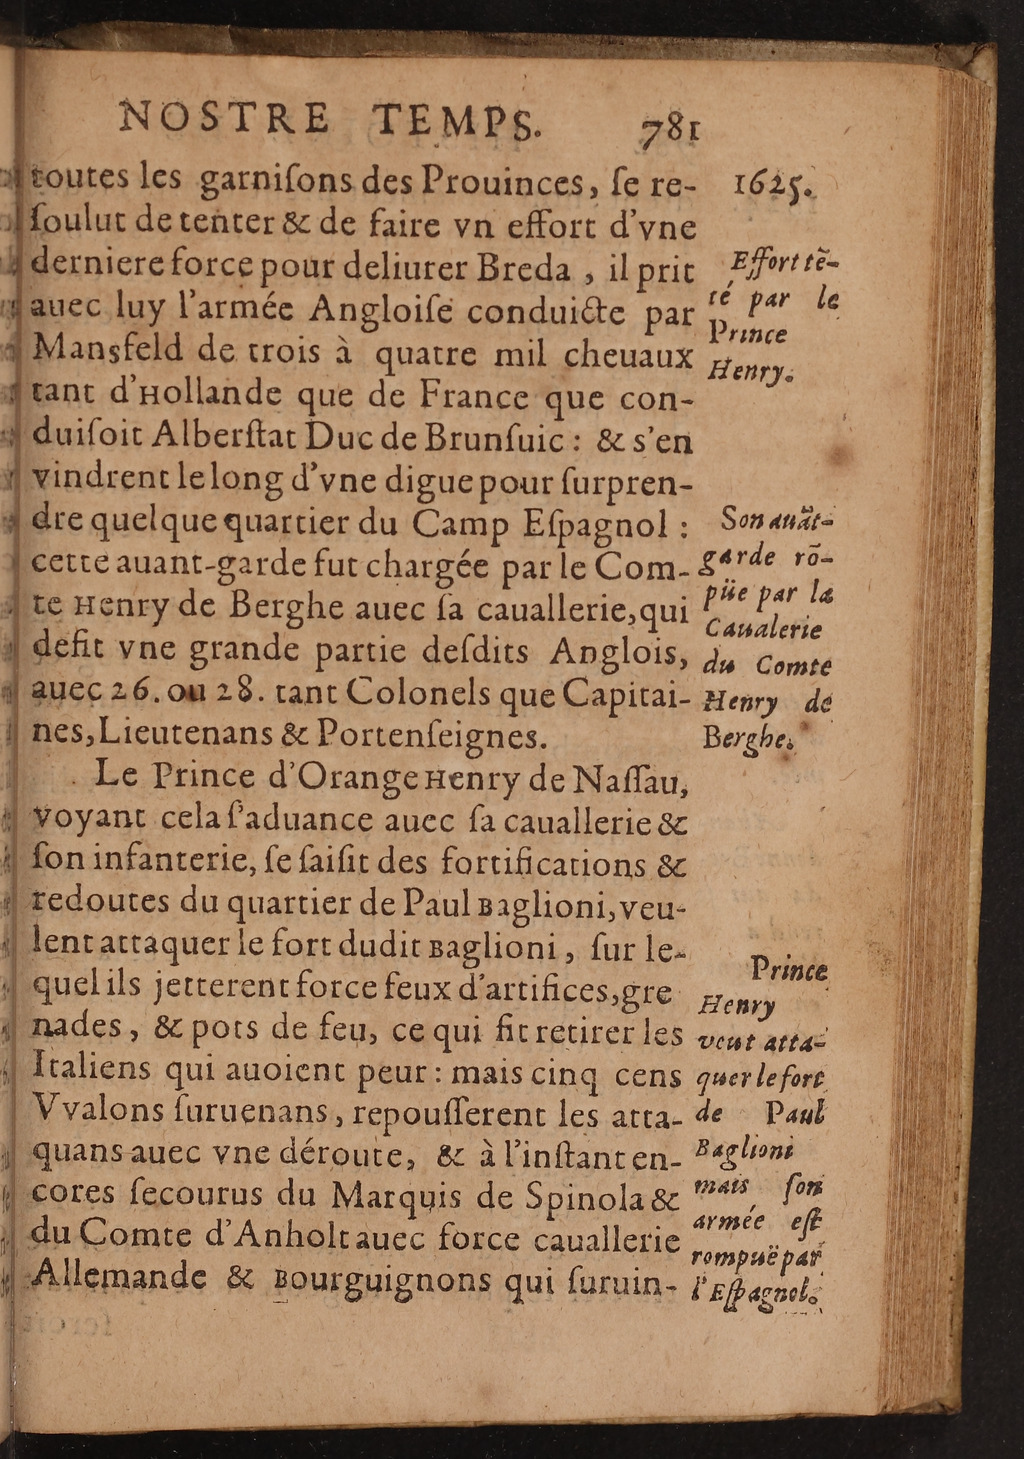 NOSTRE TEMPS. 781
toutes les garniſons des Prouinces, ſe re-
ſoulut de tenter & de faire vn effort d'vne
derniere force pour deliurer Breda, il prit
auec luy l'armée Angloiſe conduicte par
Mansfeld de trois à quatre mil cheuaux
tant d'Hollande que de France que con-
duiſoit Alberſtat Duc de Brunſuic: & s'en
vindrent le long d'vne digue pour ſurpren-
dre quelque quartier du Camp Eſpagnol:
cette auant-garde fut chargée par le Com-
te Henry de Berghe auec ſa cauallerie, qui
defit vne grande partie deſdits Anglois,
auec 26. ou 28. tant Colonels que Capitai-
nes, Lieutenans & Portenſeignes.
Le Prince d'Orange Henry de Naſſau,
voyant cela ſ'aduance auec ſa cauallerie &
ſon infanterie, ſe ſaiſit des fortifications &
redoutes du quartier de Paul Baglioni, veu-
lent attaquer le fort dudit Baglioni, ſur le-
quel ils jetterent force feux d'artifices, gre
nades, & pots de feu, ce qui fit retirer les
Italiens qui auoient peur: mais cinq cens
Vvalons ſuruenans, repouſſerent les atta-
quans auec vne déroute, & à l'inſtant en-
cores ſecourus du Marquis de Spinola &
du Comte d'Anholt auec force cauallerie
Allemande & Bourguignons qui ſuruin-
1625.
Effort tẽ-
té par le
Prince
Henry.
Son auãt-
garde rõ-
püe par la
Caualerie
du Comte
Henry de
Berghe.
Prince
Henry
veut atta-
quer le fort
de Paul
Baglioni
mais ſon
armée eſt
rompuë par
l'Eſpagnol.